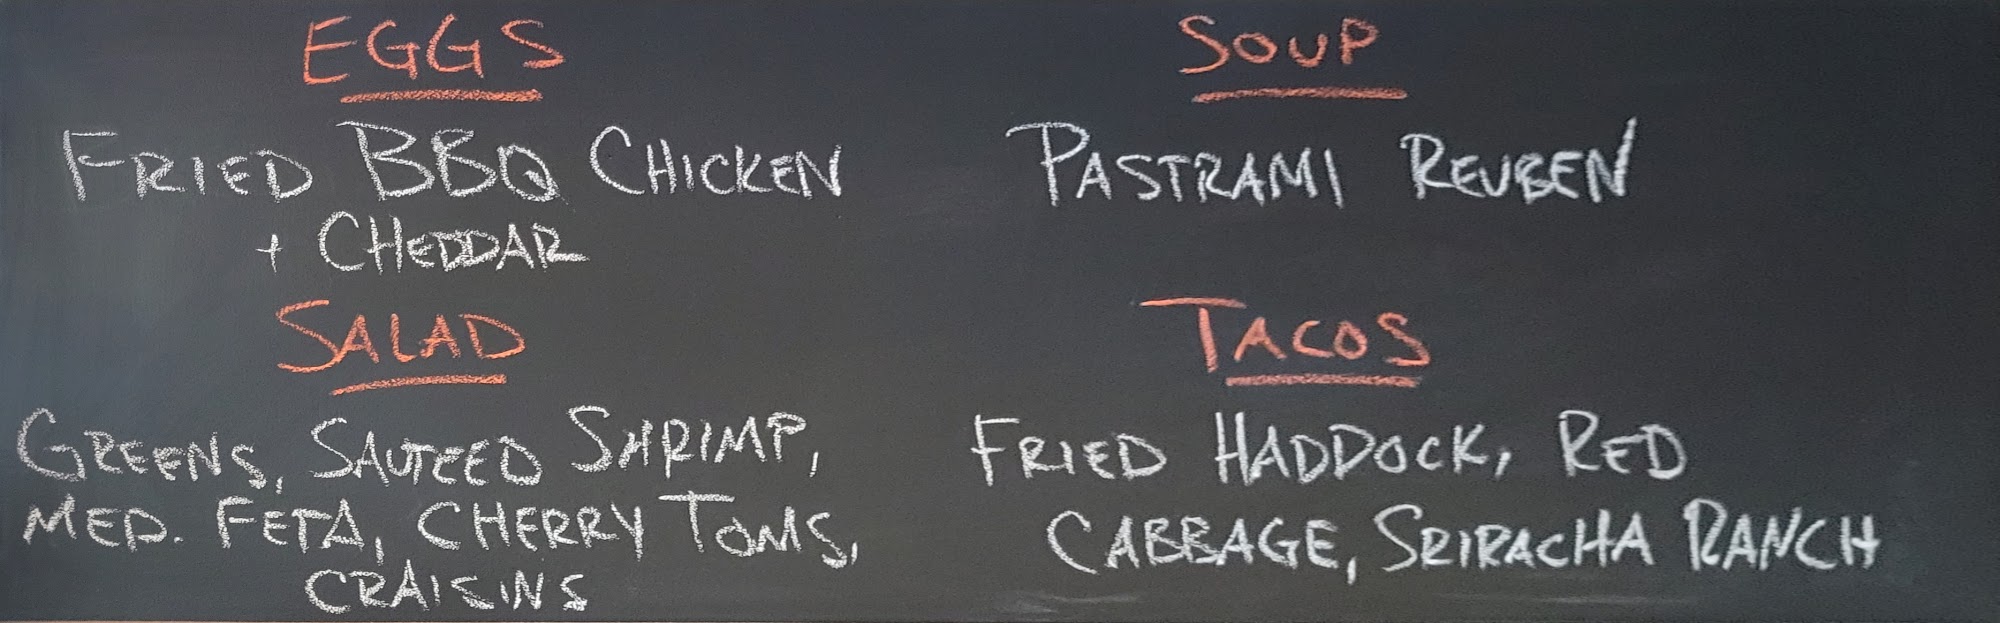 EGGS
FRIED BBQ CHICKEN
+ CHEDDAR
SALAD
GREENS, SAUTEED SHRIMP,
MED. FETA, CHERRY TOMS,
CRAISINS
SOUP
PASTRAMI REUBEN
TACOS
FRIED HADDOCK, RED
CABBAGE, SRIRACHA RANCH